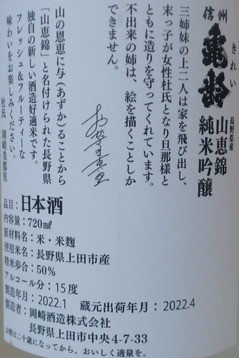 信州
きれい
亀齢
長野県産
山恵錦
純米吟醸
三姉妹の上二人は家を飛び出し、
末っ子が女性杜氏となり旦那様と
ともに造りを守ってくれています。
不出来の姉は、絵を描くことしか
できません。
山の恩恵に与(あずか)ることから
「山恵錦」と名付けられた長野県
独自の新しい酒造好適米です。
フレッシュ&フルーティーな
味わいをお楽しみください。
杜氏 岡崎美都里
品目:日本酒
内容量:720㎖
原材料名:米・米麹
使用米名:長野県上田市産
精米歩合:50%
アルコール分:15度
製造年月:2022.1 蔵元出荷年月:2022.4
製造者:岡崎酒造株式会社
長野県上田市中央4-7-33
お酒は二十歳になってから、おいしく適量を。